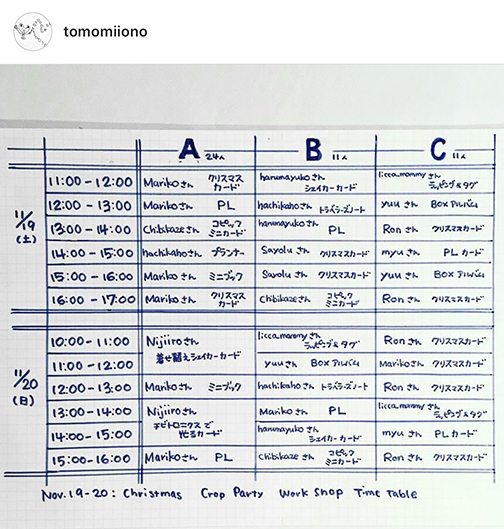 tomomiiono
A 24人 B 11人 C 11人
11/19 (土)
11:00-12:00 Marikoさん クリスマスカード harunayukoさん シェイカーカード licca_mommyさん ラッピング&タグ
12:00-13:00 Marikoさん PL hachikahoさん トラベラーズノート yuuさん BOXアルバム
13:00-14:00 Chibikazeさん コピックミニカード harunayukoさん PL Ronさん クリスマスカード
14:00-15:00 hachikahoさん プランナー Sayoluさん クリスマスカード myuさん PLカード
15:00-16:00 Marikoさん ミニブック Sayoluさん クリスマスカード yuuさん BOXアルバム
16:00-17:00 Marikoさん クリスマスカード Chibikazeさん コピックミニカード Ronさん クリスマスカード
11/20 (日)
10:00-11:00 Nijiiroさん 着せ替えシェイカーカード licca_mommyさん ラッピング&タグ Ronさん クリスマスカード
11:00-12:00 yuuさん BOXアルバム Marikoさん クリスマスカード
12:00-13:00 Marikoさん ミニブック hachikahoさん トラベラーズノート Ronさん クリスマスカード
13:00-14:00 Nijiiroさん チビトロニクスで光るカード Marikoさん PL licca_mommyさん ラッピング&タグ
14:00-15:00 harunayukoさん シェイカーカード myuさん PLカード
15:00-16:00 Marikoさん PL Chibikazeさん コピックミニカード Ronさん クリスマスカード
Nov.19-20: Christmas Crop Party Work Shop Time Table